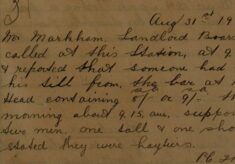 Aug 31st 19
Mr Markham, Landlord Boars
called at this Station, at 9
& reported that someone had
his till from the bar at
Head containing 8/- or 9/-
morning about 9.15 am, suppo
two men, one tall & one sho
stated they were hayties.
PC